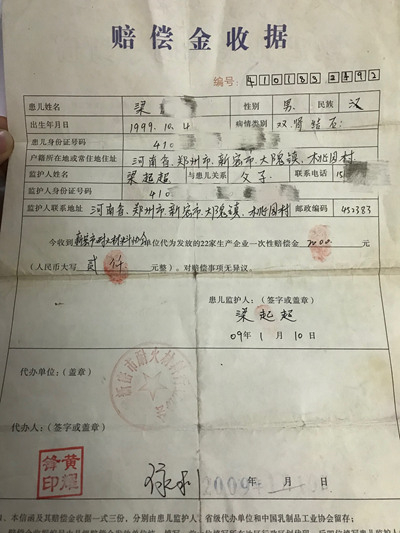 赔偿金收据
编号: 4101832492
患儿姓名 梁 性别 男 民族 汉
出生年月日 1999.10.4 病情类别 双肾结石
患儿身份证号码 410
户籍所在地或常住地住址 河南省郑州市新密市大隗镇桃园村
监护人姓名 梁起超 与患儿关系 父子 联系电话 15
监护人身份证号码 410
监护人联系地址 河南省郑州市新密市大隗镇桃园村 邮政编码 452383
今收到新密市耐火材料协会单位代为发放的22家生产企业一次性赔偿金 2000 元
(人民币大写 贰仟 元整)。对赔偿事项无异议。
患儿监护人:(签字或盖章)
梁起超
09年1月10日
代办单位:(盖章)
代办人:(签字或盖章)
黄耀锋印
2009年 月 日
1、本信函及其赔偿金收据一式三份,分别由患儿监护人、省级代办单位和中国乳制品工业协会留存;